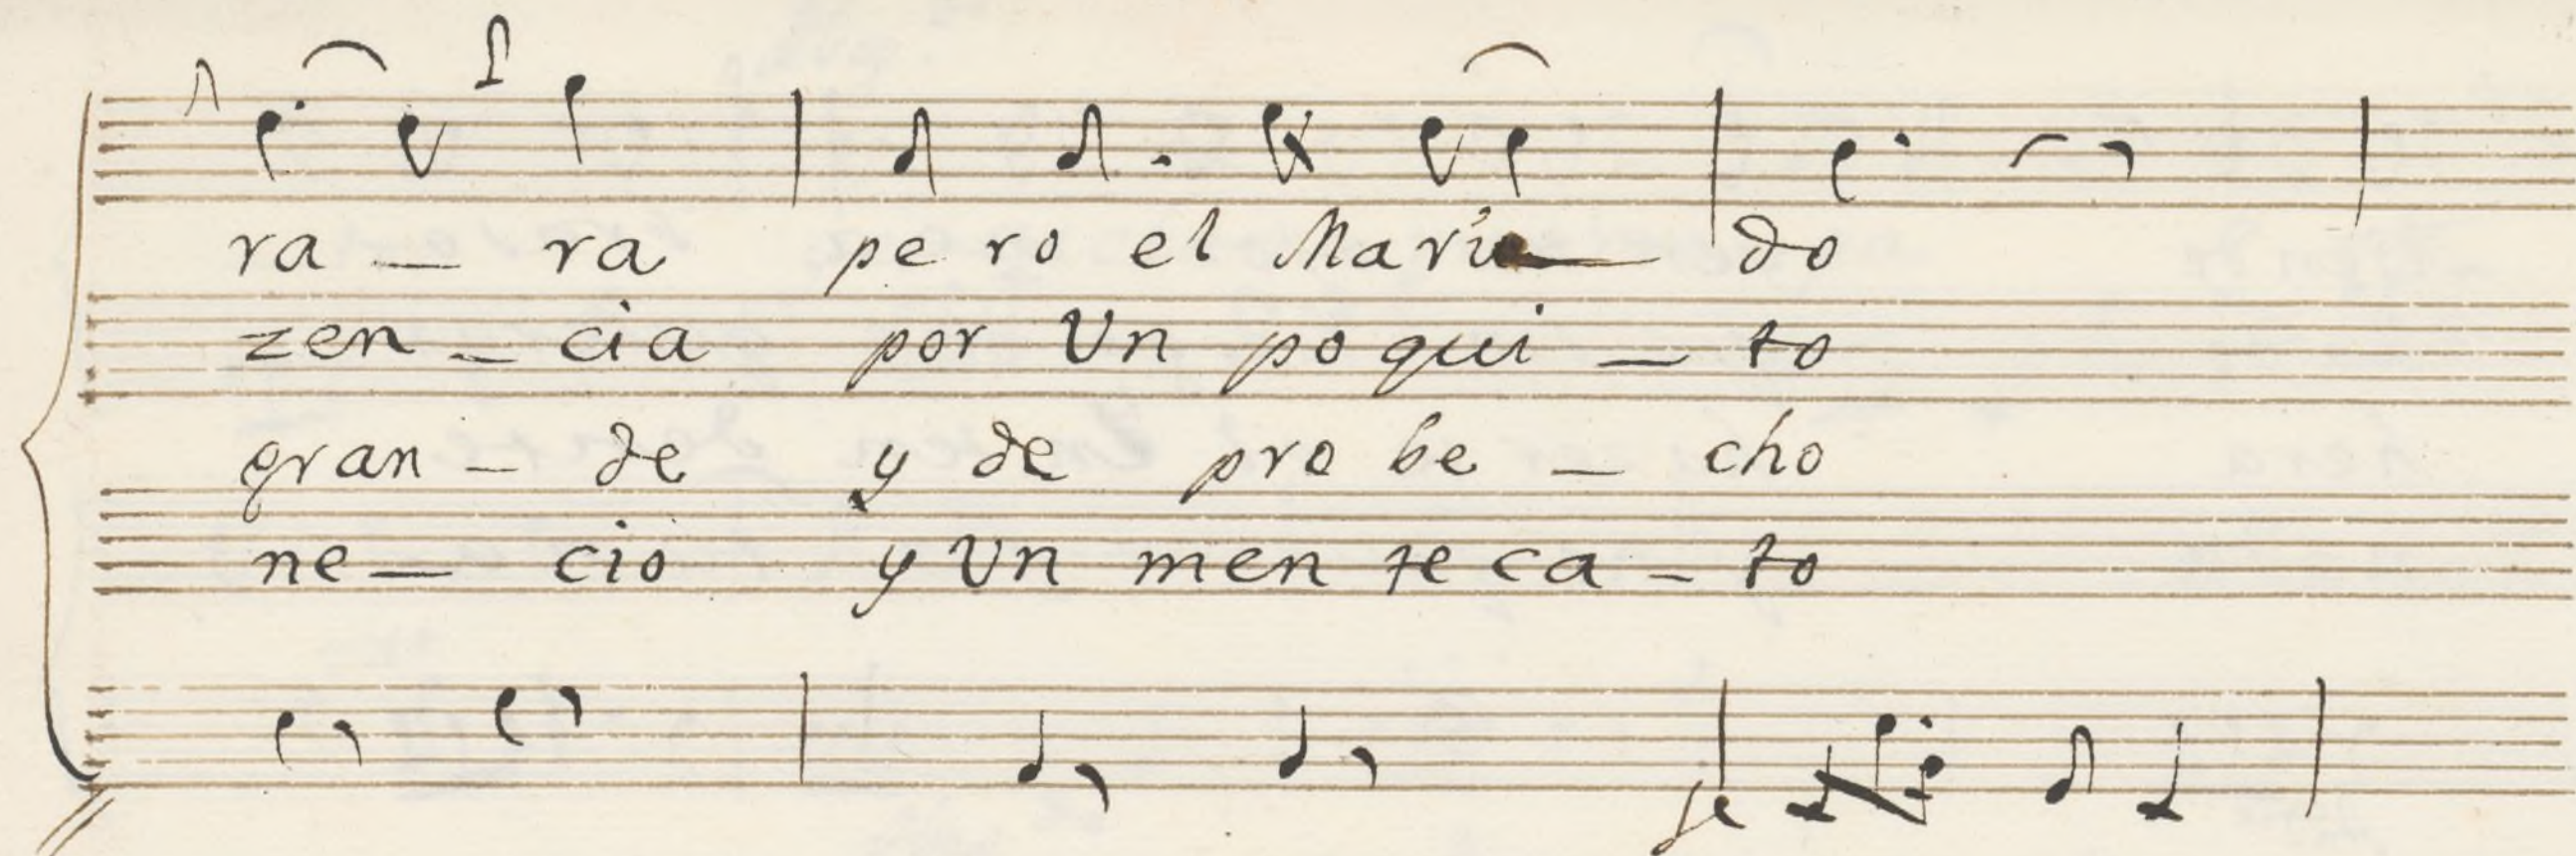 ra — ra pe ro el Mari — do
zen — cia por Un po qui — to
gran — de y de pro be — cho
ne — cio y Un men te ca — to
fe